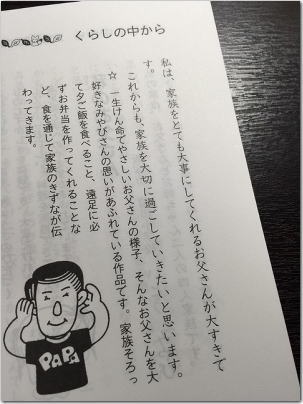 くらしの中から
私は、家族をとても大事にしてくれるお父さんが大すきで
す。
これからも、家族を大切に過ごしていきたいと思います。
☆ 一生けん命でやさしいお父さんの様子、そんなお父さんを大
好きなみやびさんの思いがあふれている作品です。家族そろっ
て夕ご飯を食べること、遠足に必
ずお弁当を作ってくれることな
ど、食を通じて家族のきずなが伝
わってきます。
PAPA